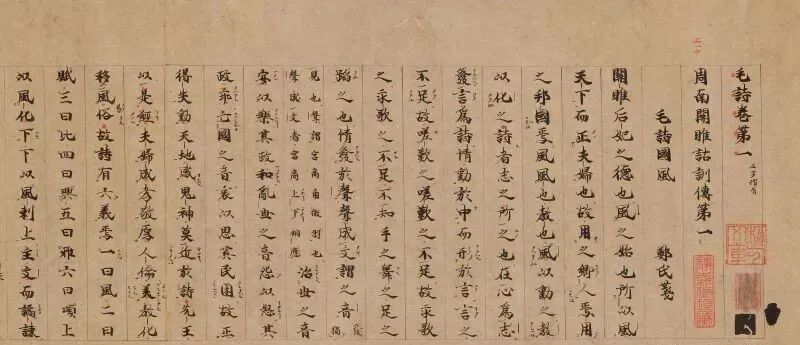 毛詩卷第一
周南關雎詁訓傳第一
毛詩國風 鄭氏箋
關雎后妃之德也風之始也所以風
天下而正夫婦也故用之鄉人焉用
之邦國焉風風也教也風以動之教
以化之詩者志之所之也在心爲志
發言爲詩情動於中而形於言言之
不足故嗟歎之嗟歎之不足故永歌
之永歌之不足不知手之舞之足之
蹈之也情發於聲聲成文謂之音
見也聲謂宮商角徵羽也
聲成文者宮商上下相應 治世之音
安以樂其政和亂世之音怨以怒其
政乖亡國之音哀以思其民困故正
得失動天地感鬼神莫近於詩先王
以是經夫婦成孝敬厚人倫美教化
移風俗故詩有六義焉一曰風二曰
賦三曰比四曰興五曰雅六曰頌上
以風化下下以風刺上主文而譎諫